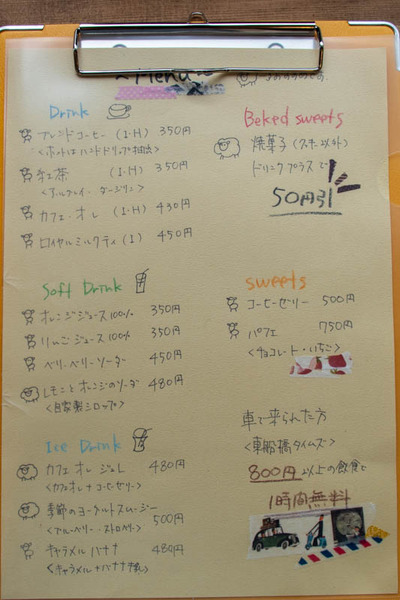 ~Menu~
おすすめです。
Drink
ブレンドコーヒー (I・H) 350円
<ホットはハンドドリップ抽出>
紅茶 (I・H) 350円
<アールグレイ・ダージリン>
カフェ・オレ (I・H) 430円
ロイヤルミルクティ (I) 450円
Soft Drink
オレンジジュース 100% 350円
りんごジュース 100% 350円
ベリーベリーソーダ 450円
レモンとオレンジのソーダ 480円
<自家製シロップ>
Ice Drink
カフェオレジュレ 480円
<カフェオレ+コーヒーゼリー>
季節のヨーグルトスムージー
<ブルーベリー・ストロベリー> 500円
キャラメルバナナ 480円
<キャラメル+バナナ+乳>
Beked sweets
焼菓子 (クッキー以外)
ドリンクプラスで
50円引
sweets
コーヒーゼリー 500円
パフェ 750円
<チョコレート・いちご>
車で来られた方
<東船橋タイムズ>
800円以上の飲食で
1時間無料